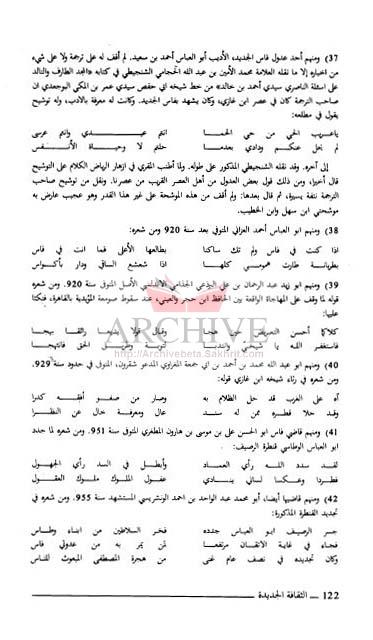 37) ومنهم أحد عدول فاس الجديد، الأديب أبو العباس أحمد بن سعيد. لم أقف له على ترجمة ولا على شيء
من اخباره إلا ما نقله العلامة محمد الأمين بن عبد الله الحجاجي الشنجيطي في كتابه «المجد الطارف والتالد
على اسئلة الناصري سيدي أحمد بن خالد» من خط شيخه ابي حفص سيدي عمر بن المكي البوجعدي ان
صاحب الترجمة كان في عصر ابن غازي، وكان يشهد بفاس الجديد. وكانت له معرفة بالأدب، وله توشيح
يقول في مطلعه:
ياعريب الحي من حي الحمـا انتم عيـــدي وانتم عرسي
لم يحل عنكم ودادي بعدمـا حلتم لا وحيـاة الأنـــفس
إلى آخره. وقد نقله الشنجيطي المذكور على طوله. ولما اطنب المقري في ازهار الرياض الكلام على التوشيح
قال أخيرا: ومن ذلك قول بعض العدول من أهل العصر القريب من عصرنا. ونقل من توشيح صاحب
الترجمة نتفة يسيرة، ثم قال بعدها: ولم أقف من هذه الموشحة على غير هذا القدر وهو عجيب عارض به
موشحتي ابن سهل وابن الخطيب.
38) ومنهم ابو العباس أحمد الغزالي المتوفى بعد سنة 920 ومن شعره:
اذا كنت في فاس ولم تك ساكنا بطالعها الأعلى فما انت في فاس
طارت همومي كلهـــا اذا شعشع الساقي ودار بأكـــواس
39) ومنهم ابو زيد عبد الرحمان بن علي الجذامي الأندلسي الأصل المتوفى سنة
قوله لما وقف على المهاجاة الواقعة بين الحافظ ابن حجر والعيني، عند سقوط صومعة المؤيدية بالقاهرة، فكتبا
عليها:
كلاكما أحسن التعريض وقال قولا
فاستغفر الله يا شيخي الحق فانتهجا
ARCHIVE
http://Archivebeta.Sakhrit.com
40) ومنهم ابو عبد الله محمد بن أحمد بن ابي جمعة المغراوي المدعو شقرون، المتوفى في حدود سنة 929.
ومن شعره في رثاء شيخه ابن غازي قوله:
آه على الغرب قد حل الظلام به وصار من صفو أفقه كدرا
وقد خلا قطره ممن له سند عال ومعرفة خال عن النظرا
41) ومنهم قاضي فاس ابو الحسن علي بن موسى بن هارون المطغري المتوفى سنة 951. ومن شعره لما جدد
ابو العباس الوطاسي قنطرة الرصيف:
لقد سدد اللـــه رأي العمـــاد وأبطـل في السد رأي الجهـول
وعكسا عقول الملوك ملوك العقول
42) ومنهم قاضيها أيضا، أبو محمد عبد الواحد بن احمد الونشريسي المستشهد سنة 955. ومن شعره في
تجديد القنطرة المذكورة:
جسر الرصيف ابو العباس جدده فخر السلاطين من ابناء وطاس
فجاء في غاية الاتقان مرتفعا لمن يمر به من عدوتي فاس
وكان تجديده في نصف عام غنى من هجرة المصطفى المبعوث للناس
122 ـ الثقافة الجديدة